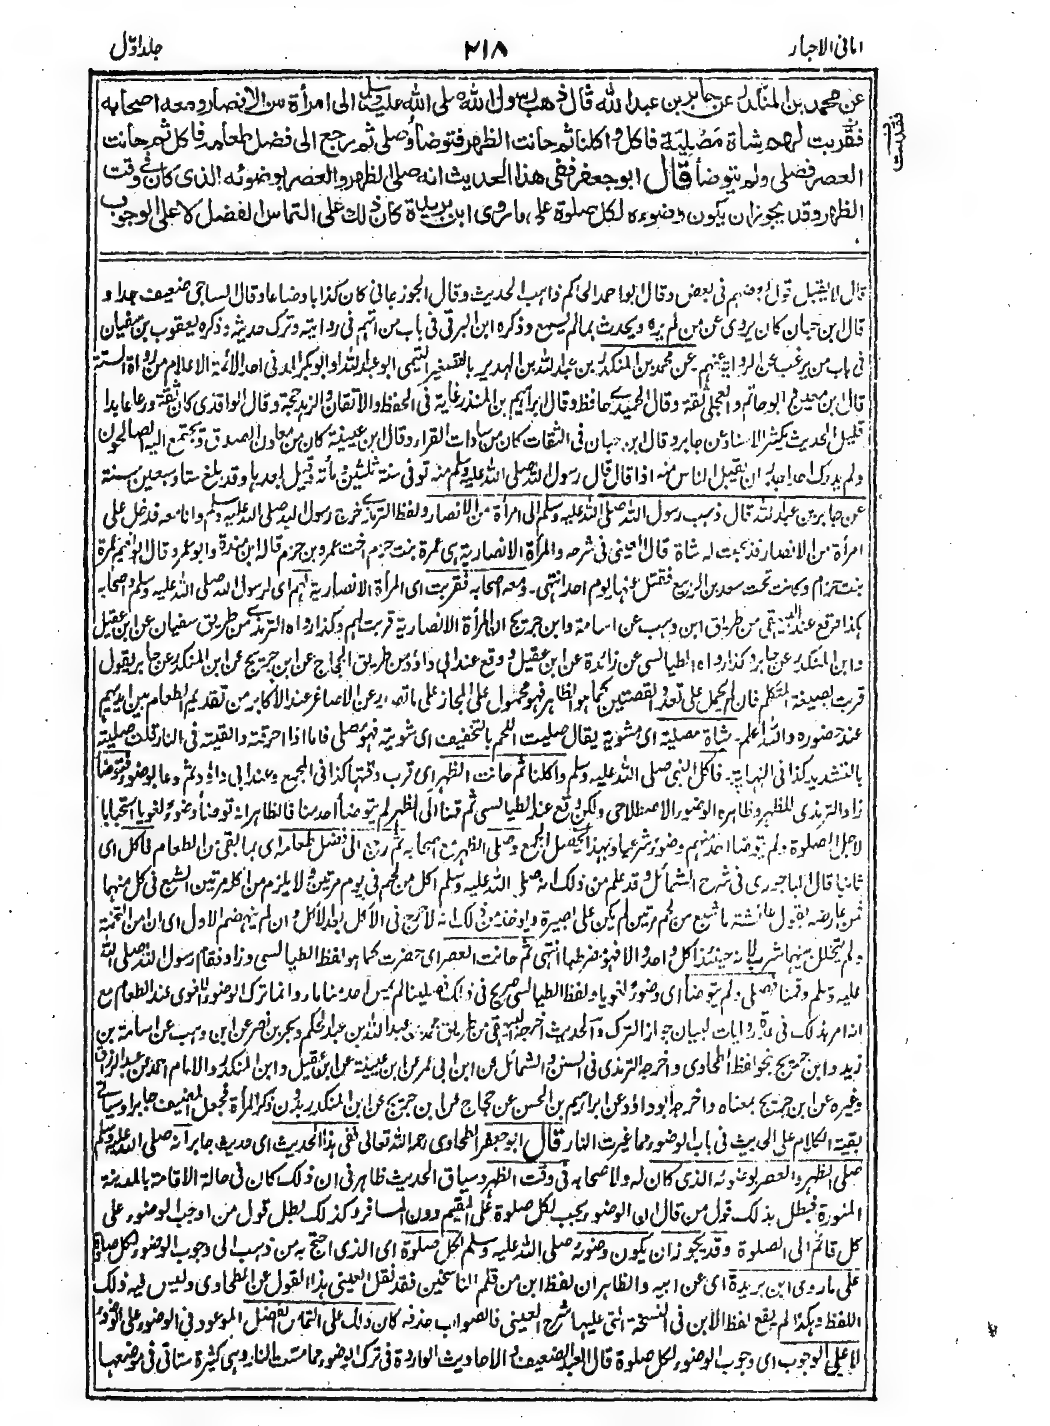 امانی الاحبار ۲۱۸ جلد اوّل
عن محمد بن المنكدر عن جابر بن عبد الله قال ذهب رسول الله صلى الله عليه وسلم الى امرأة من الانصار ومعه اصحابه
فقربت لهم شاة مصلية فاكل واكلنا ثم حانت الظهر فتوضأ وصلى ثم رجع الى فضل طعامه فاكل ثم حانت
العصر فصلى ولم يتوضأ قال ابو جعفر ففى هذا الحديث انه صلى الظهر والعصر بوضوئه الذى كان فى وقت
الظهر وقد يجوز ان يكون وضوءه لكل صلوة على ما روى ابن بريدة كان ذلك على التماس الفضل لا على الوجوب
قال لا يقبل قول بعضهم فى بعض وقال ابو احمد الحاكم ذاهب الحديث وقال الجوزجانى كان كذابا وضاعا وقال الساجى ضعيف جدا و
قال ابن حبان كان يروى عن من لم يره ويحدث بما لم يسمع وذكره ابن البرقى فى باب من اتهم فى روايته وترك حديثه وذكره يعقوب بن سفيان
فى باب من يرغب عن الرواية عنهم عن محمد بن المنكدر بن عبد الله بن الهدير بالتصغير التيمى ابو عبد الله او ابو بكر المدنى احد الائمة الاعلام من رواة الستة
قال ابن معين وابو حاتم والعجلى ثقة وقال الحميدى حافظ وقال ابراهيم بن المنذر غاية فى الحفظ والاتقان والزهد حجة وقال الواقدى كان ثقة ورعا عابدا
قليل الحديث يكثر الاسناد عن جابر وقال ابن حبان فى الثقات كان من سادات القراء وقال ابن عيينة كان من معادن الصدق ويجتمع اليه الصالحون
ولم يدرك احد اجدر ان يقبل الناس منه اذا قال قال رسول الله صلى الله عليه وسلم منه توفى سنة ثلثين ومأة قيل بعدها وقد بلغ ستا وسبعين سنة
عن جابر بن عبد الله قال ذهب رسول الله صلى الله عليه وسلم الى امرأة من الانصار ولفظ الترمذى خرج رسول الله صلى الله عليه وسلم وانا معه فدخل على
امرأة من الانصار فذبحت له شاة قال العينى فى شرحه والمرأة الانصارية هى عمرة بنت حزم اخت عمرو بن حزم قاله ابن مندة وابو عمر وقال ابو نعيم عمرة
بنت حزام وكانت تحت سعد بن الربيع فقتل عنها يوم احد انتهى ۔ ومعه اصحابه فقربت اى المرأة الانصارية لهم اى لرسول الله صلى الله عليه وسلم وصحابه
كذا وقع عند البيهقى من طريق ابن وهب عن اسامة وابن جريج ان المرأة الانصارية قربت لهم وكذا رواه الترمذى من طريق سفيان عن ابن عقيل
وابن المنكدر عن جابر وكذا رواه الطيالسى عن زائدة عن ابن عقيل ووقع عند ابى داؤد من طريق الحجاج عن ابن جريج عن ابن المنكدر عن جابر يقول
قربت بصيغة المتكلم فان لم يحمل على تعدد القصتين كما هو الظاهر فهو محمول على المجاز على ما تعورف عن الاصاغر عند الاكابر من تقديم الطعام بين ايديهم
عند حضوره والله اعلم ۔ شاة مصلية اى مشوية يقال صليت اللحم بالتخفيف اى شويته فهو مصلى فاما اذا احرقته والقيته فى النار قلت صليته
بالتشديد كذا فى النهاية ۔ فاكل النبى صلى الله عليه وسلم واكلنا ثم حانت الظهر اى قرب وقتها كذا فى المجمع وعند ابى داؤد ثم دعا بوضوء فتوضأ
زاد الترمذى للظهر وظاهره الوضوء الاصطلاحى ولكن وقع عند الطيالسى ثم قمنا الى الظهر لم يتوضأ احد منا فالظاهر انه توضأ وضوءا لغويا استحبابا
لاجل الصلوة ولم يتوضأ احد منهم وضوءا شرعيا وبهذا يحصل الجمع وصلى الظهر مع اصحابه ثم رجع الى فضل طعامه اى ما بقى من الطعام فاكل اى
ثانيا قال الباجورى فى شرح الشمائل وقد علم من ذلك انه صلى الله عليه وسلم اكل من لحم فى يوم مرتين ولا يلزم من اكله مرتين الشبع فى كل منهما
فمن عارضه بقول عائشة ما شبع من لحم مرتين لم يكن على بصيرة ويؤخذ من ذلك انه لا حرج فى الاكل بعد الاكل وان لم ينهضم الاول اى ان امن التخمة
ولم يتخلل بينهما شرب لانه حينئذ اكل واحد والا فهو مضر طبا انتهى ثم حانت العصر اى حضرت كما هو لفظ الطيالسى وزاد فقام رسول الله صلى الله
عليه وسلم وقمنا فصلى ولم يتوضأ اى وضوءا لغويا ولفظ الطيالسى صريح فى ذلك فصلينا لم يمس احد منا ماء وانما ترك الوضوء اللغوى عند الطعام مع
انه امر بذلك فى عدة روايات لبيان جواز الترك والحديث اخرجه البيهقى من طريق محمد بن عبد الله بن عبد الحكم وبحر بن نصر عن ابن وهب عن اسامة بن
زيد وابن جريج نحو لفظ الطحاوى واخرجه الترمذى فى السنن والشمائل عن ابن ابى عمر عن ابن عيينة عن ابن عقيل وابن المنكدر والامام احمد عن عبد الرزاق
وغيره عن ابن جريج بمعناه واخرجه ابو داؤد عن ابراهيم بن الحسن عن حجاج عن ابن جريج عن ابن المنكدر بدون ذكر المرأة فجعل المضيف جابرا وسيأتى
بقية الكلام على الحديث فى باب الوضوء مما غيرت النار قال ابو جعفر الطحاوى رحمه الله تعالى ففى هذا الحديث اى حديث جابر انه صلى الله عليه وسلم
صلى الظهر والعصر بوضوئه الذى كان له ولاصحابه فى وقت الظهر وسياق الحديث ظاهر فى ان ذلك كان فى حالة الاقامة بالمدينة
المنورة فبطل بذلك قول من قال ان الوضوء يجب لكل صلوة على المقيم دون المسافر وكذلك بطل قول من اوجب الوضوء على
كل قائم الى الصلوة وقد يجوز ان يكون وضوءه صلى الله عليه وسلم لكل صلوة اى الذى احتج به من ذهب الى وجوب الوضوء لكل صلوة
على ما روى ابن بريدة اى عن ابيه والظاهر ان لفظ ابن من قلم الناسخين فقد نقل العينى هذا القول عن الطحاوى وليس فيه ذلك
اللفظ وهكذا لم يقع لفظ الابن فى النسخة التى عليها شرح العينى فالصواب حذفه كان ذلك على التماس الفضل الموعود فى الوضوء على الوضوء
لا على الوجوب اى وجوب الوضوء لكل صلوة قال العبد الضعيف والاحاديث الواردة فى ترك الوضوء مما مست النار وهى كثيرة ستاتى فى موضعها